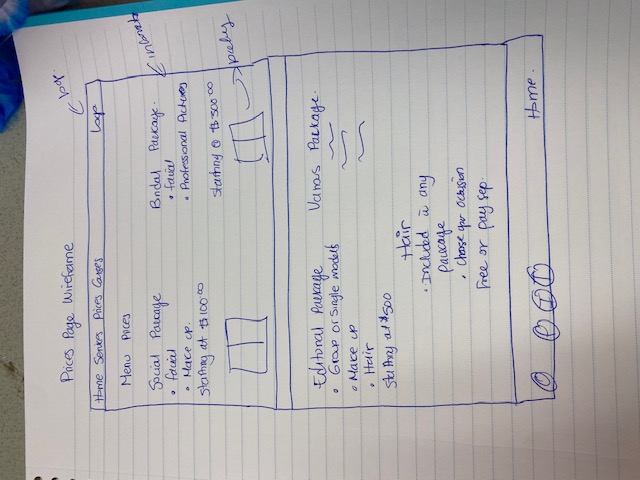 Prices Page Wireframe
logo.
Home Services Prices Careers
Logo
Menu Prices
Social Package
• facial
• Make up.
Starting at $100.00
Bridal Package.
• facial
• Professional Pictures
Starting @ $300.00
Editorial Package
• Group or Single models
• Make up
• Hair
Starting at $500
Various Package.
Hair
• Included in any
package
• Choose your occasion
Free or pay sep.
Home.